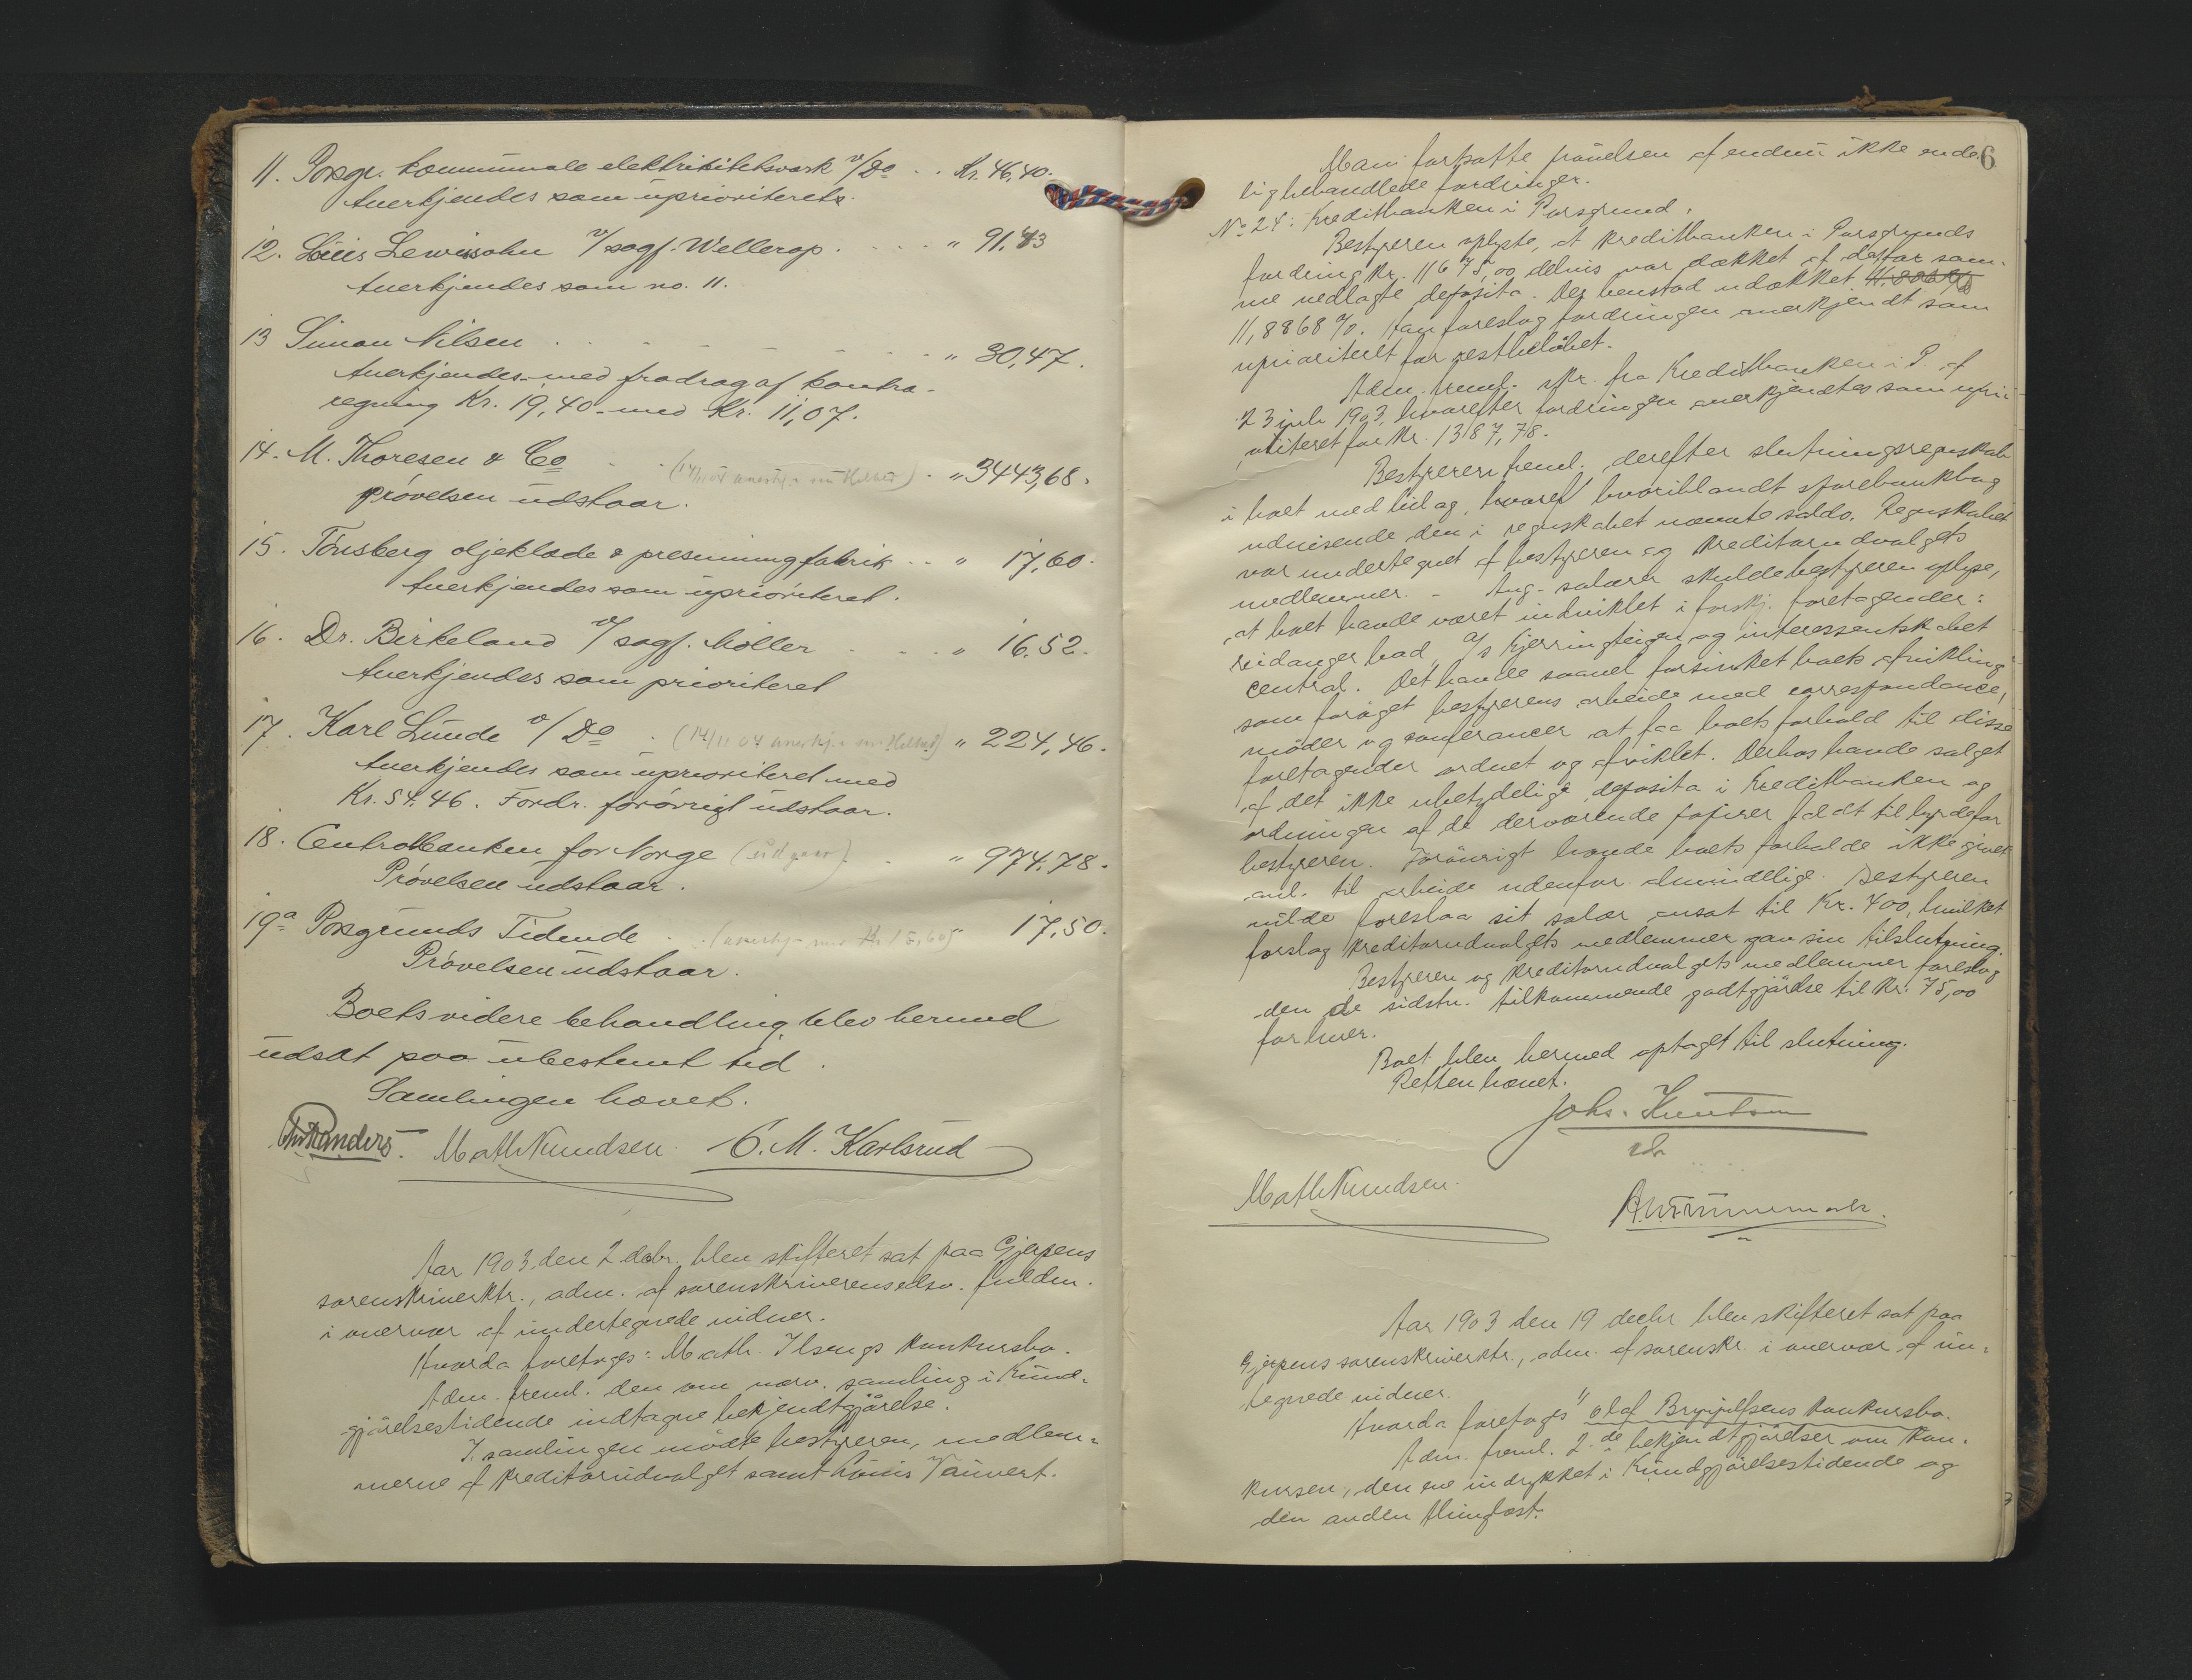 11. Porsgr. kommunale elektricitetsverk v/Do . . Kr. 46,40.
Anerkjendes som uprioriterets.
12. Louis Lewisohn v/sagf. Wellerop. . . . . " 91.43
Anerkjendes som no. 11.
13 Simon Nilsen . . . . . " 30,47.
Anerkjendes med fradrag af kontra-
regning Kr. 19,40 - med Kr. 11,07.
14. M. Thoresen & Co . . . " 3443,68.
Prøvelsen udstaar.
15. Tönsberg oljeklæde & presenningfabrik . . " 17,60.
Anerkjendes som uprioriteret.
16. Dr. Birkeland v/sagf. Möller . . . . " 16.52.
Anerkjendes som prioriteret
17. Karl Lunde v/Do . (14/11 04 anerkj. ) " 224,46.
Anerkjendes som uprioriteret med
Kr. 54.46. Fordr. forövrigt udstaar.
18. Centralbanken for Norge (udgaar) . " 974.78.
Prøvelsen udstaar.
19a Porsgrunds Tidende . . (anerkj. med Kr. 15,60) " 17,50.
Prøvelsen udstaar.
Boets videre behandling blev hermed
udsat paa ubestemt tid.
Samlingen hævet.
Math Knudsen. C. M. Karlsrud
Aar 1903 den 2 debr. blev skifteret sat paa Gjerpens
sorenskriverktr., adm. af sorenskriverens edsv. fuldm.
i overvær af undertegnede vidner.
Hvorda foretoges: Math. Ilsengs konkursbo.
Adm. freml. den om nærv. samling i Kund-
gjörelsestidende indtagne bekjendtgjörelse.
I samlingen mødte bestyreren, medlem-
merne af kreditorudvalget samt Louis Vauvert.
6
Man fortsatte prövelsen af endnu ikke ende-
lig behandlede fordringer.
No 24: Kreditbanken i Porsgrund.
Bestyreren oplyste, at kreditbanken i Porsgrunds
fordring kr. 11675,00 delvis var dækket af derfor sam-
me nedlagte deposita. Der henstod udækket
11,8868 %. Han foreslog fordringen anerkjendt som
uprioriteret for restbelöbet.
Adm. freml. skr. fra Kreditbanken i P. af
23 juli 1903, hvorefter fordringen anerkjendtes som upri-
oriteret for Kr. 1387,78.
Bestyreren freml. derefter slutningsregnskab
i boet med bilag, hvoriblandt sparebankbog
udvisende den i regnskabet nævnte saldo. Regnskabet
var undertegnet af bestyreren og kreditorudvalgets
medlemmer. - Ang. salærer skulde bestyreren oplyse,
at boet havde været indviklet i forskj. foretagender:
bad, A/s Kjerringteigen og interessentskabet
Central. Det havde saavel forsinket boets afvikling
som foröget bestyrerens arbeide med correspondance,
möder og conferancer at faa boets forhold til disse
foretagender ordnet og afviklet. Derhos havde salget
af det ikke ubetydelige deposita i Kreditbanken og
ordningen af de derværende papirer faldt til byrde for
bestyreren. Forövrigt havde boets forholde ikke givet
anl. til arbeide udenfor almindelige. Bestyreren
vilde foreslaa sit salær ansat til Kr. 400, hvilket
forslag kreditorudvalgets medlemmer gav sin tilslutning.
Bestyreren og kreditorudvalgets medlemmer foreslog
den de sidstn. tilkommende godtgjörelse til Kr. 75,00
for hver.
Boet blev hermed optaget til slutning.
Retten hævet.
Johs. Knutsen
Math Knudsen.
Aar 1903 den 19 decbr blev skifteret sat paa
Gjerpens sorenskriverktr., adm. af sorenskr. i overvær af un-
tegnede vidner.
Hvorda foretoges Olaf Brynjulfsens konkursbo.
Adm. freml. 2 de bekjendtgjörelser om kon-
kursen, den ene indrykket i Kundgjörelsestidende og
den anden